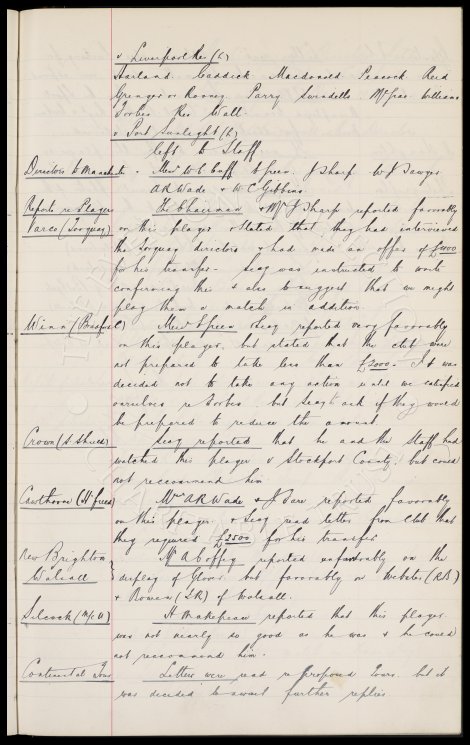 v Liverpool Res (L)
Harland. Caddick. Macdonald. Peacock. Reid
Grainger or Rooney. Parry Swindells. McGrae. Williams
Forbes. Res Wall.
v Port Sunlight (L)
left to Staff
Directors to Manchester. Messrs W C Cuff E Green. J Sharp W J Sawyer
A R Wade & W C Gibbins
Reports re Players The Chairman & Mr J Sharp reported favorably
(Torquay) on this player & stated that they had interviewed
the Torquay directors & had made an offer of £1000
for his transfer. Secy was instructed to write
confirming this & also to suggest that we might
play them a match in addition
Winn (Bradford C) Messrs Green Secy reported very favorably
on this player, but stated that the club were
not prepared to take less than £3000. It was
decided not to take any action until we satisfied
ourselves re Forbes but Secy to ask if they would
be prepared to reduce the amount.
Crown (S. Shields) Secy reported that he and the Staff had
watched this player v Stockport County, but could
not reccommend him
Cawthorne (H'field) Messrs A R Wade & J Fare reported favorably
on this player & Secy read letter from Club that
they required £2500 for his transfer
New Brighton Mr A Coffey reported unfavorably on the
Walsall display of but favorably on Webster (RB)
& Bowen (IR) of Walsall.
Silcock (M/c U) H Makepeace reported that this player
was not nearly so good as he was & he could
not reccommend him.
Continental Tour Letters were read re proposed Tours. but it
was decided to await further replies